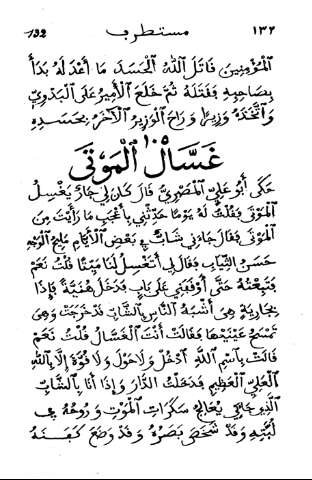 132 مستطرف ١٣٢
المؤمنين قاتل الله الحسد ما أعدله بدأ
بصاحبه فقتله ثم خلع الأمير على البدوي
واتخذه وزيرا وراح الوزير الآخر بحسده
غسال الموتى
حكى أبو علي المصري قال كان لي جار يغسل
الموتى فقلت له يوما حدثني بأعجب ما رأيت من
الموتى فقال جاءني شاب في بعض الأيام مليح الوجه
حسن الثياب فقال لي أتغسل لنا ميتا قلت نعم
فتبعته حتى أوقفني على باب فدخل هنية فإذا
بجارية هي أشبه الناس بالشاب قد خرجت وهي
تمسح عينيها فقالت أنت الغسال قلت نعم
قالت باسم الله أدخل ولا حول ولا قوة إلا بالله
العلي العظيم فدخلت الدار وإذا أنا بالشاب
الذي جاءني يعالج سكرات الموت وروحه في
لبته وقد شخص بصره وقد وضع كفنه